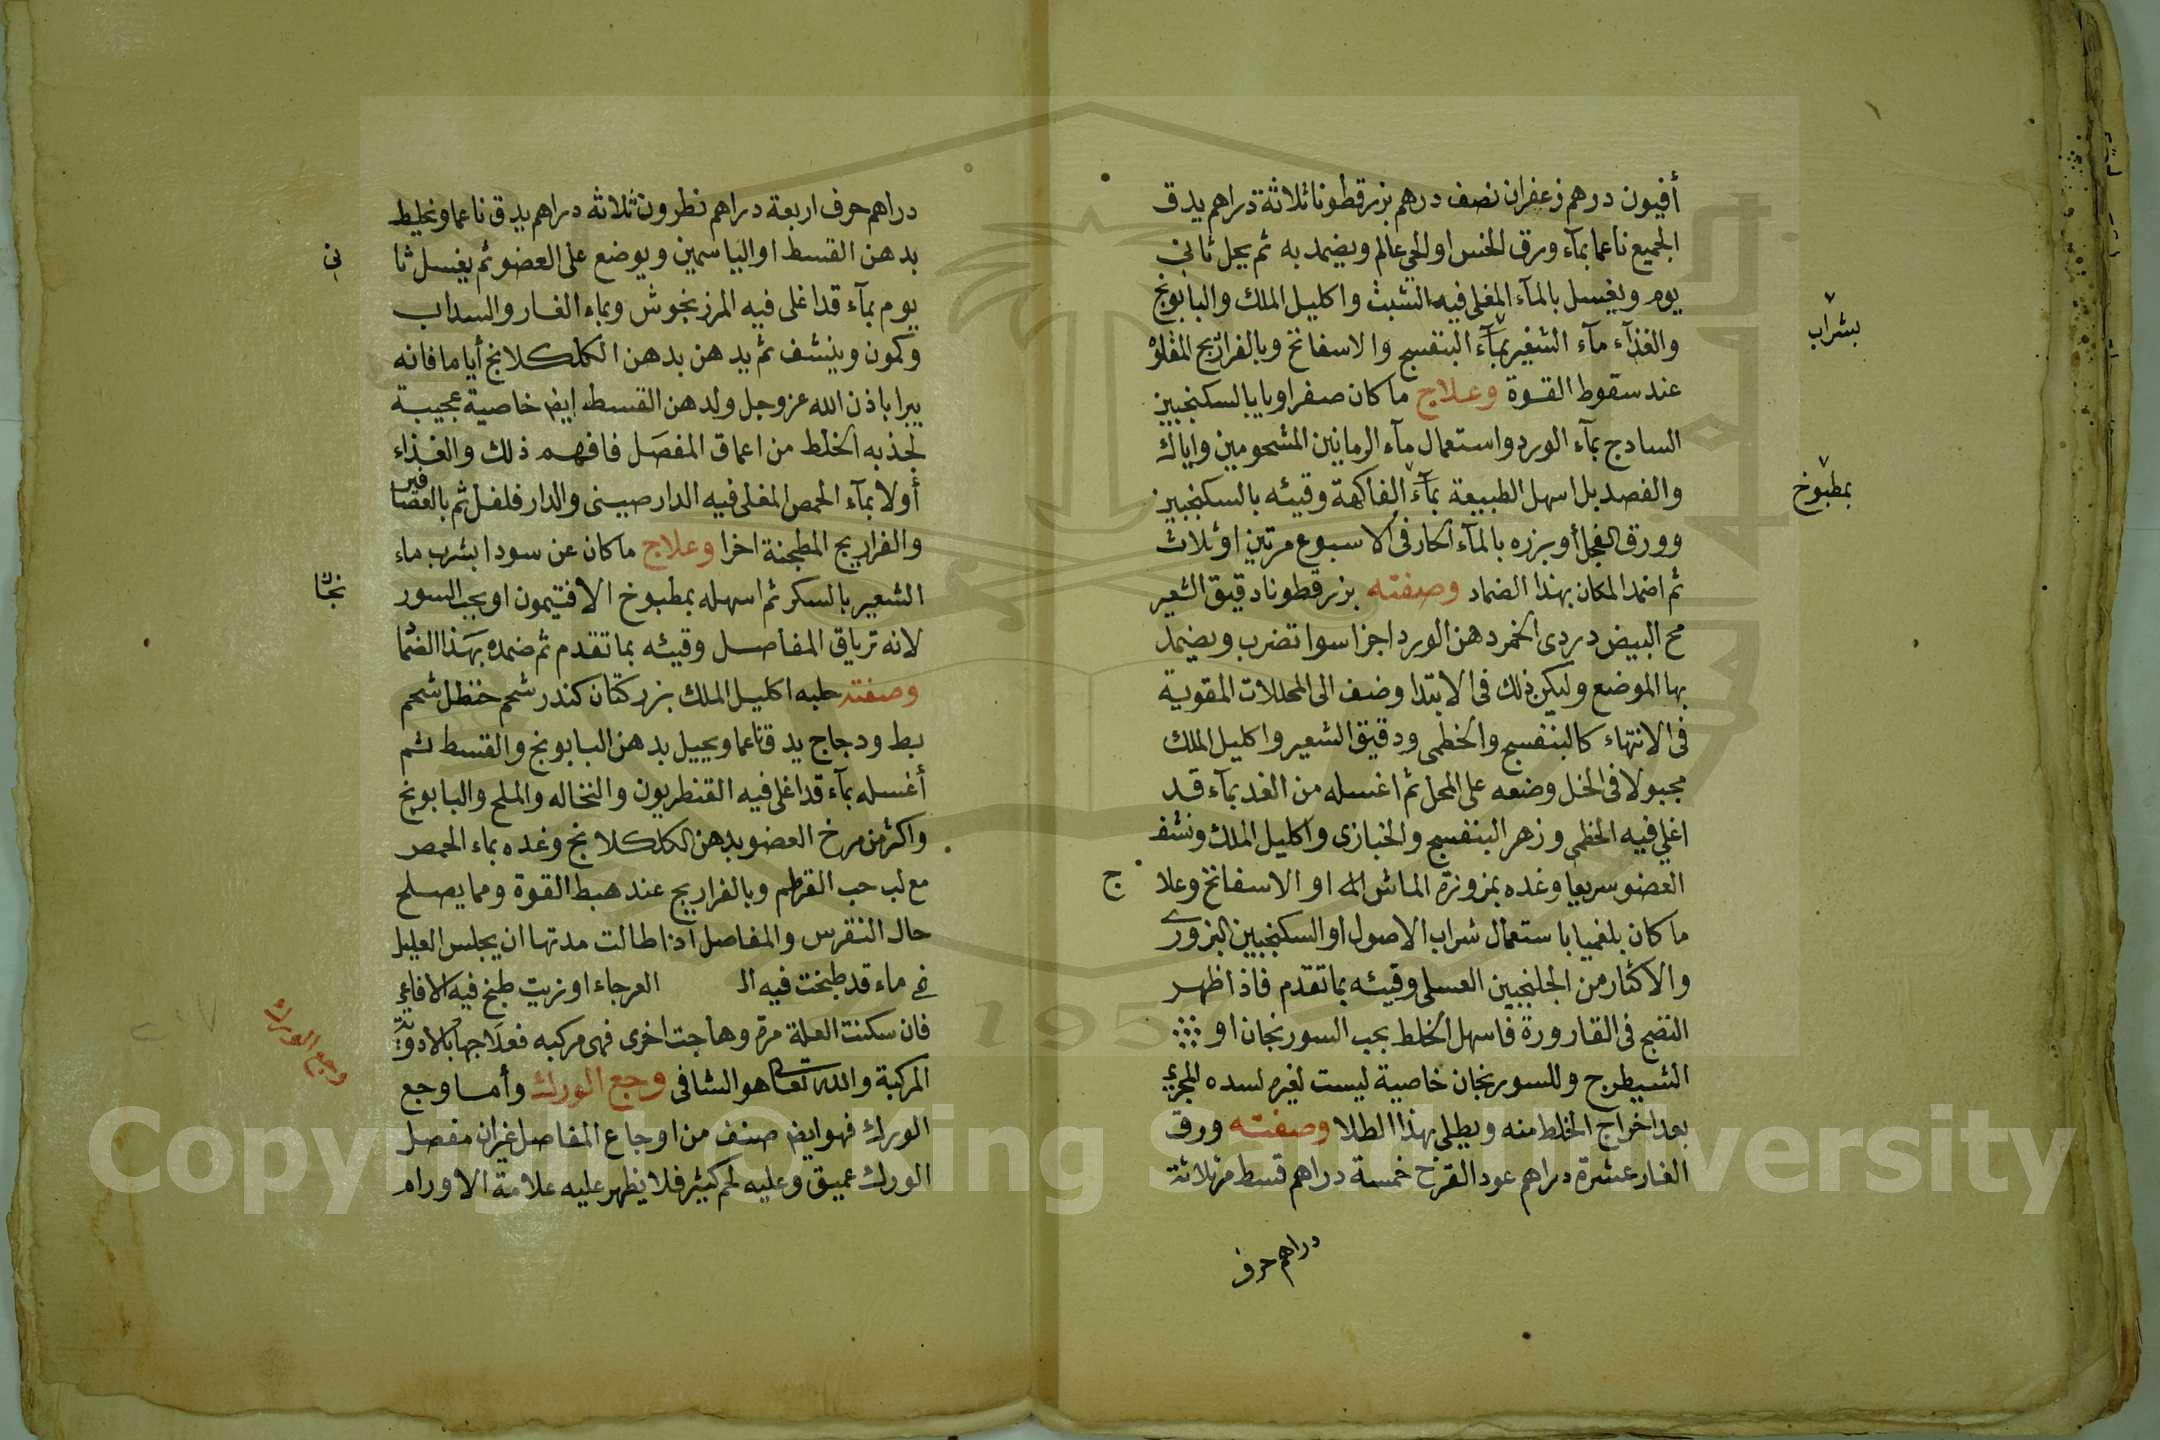 أفيون درهم زعفران نصف درهم بزر قطونا ثلاثة دراهم يدق
الجميع ناعما بمآء ورق الخس او الحي عالم ويضمد به ثم يحل ثاني
يوم ويغسل بالمآء المغلي فيه الشبث واكليل الملك والبابونج
والغذآء مآء الشعير بمآء البنفسج والاسفانخ وبالفراريج
بشراب
عند سقوط القوة وعلاج ما كان صفراويا بالسكنجبين
السادج بمآء الورد واستعمال مآء الرمانين المشحومين واياك
والفصد بل اسهل الطبيعة بمآء الفاكهة وقيئه بالسكنجبين
بمطبوخ
وورق الفجل أو بزره بالمآء الحار في الاسبوع مرتين او ثلاث
ثم اضمد المكان بهذا الضماد وصفته بزر قطونا دقيق الشعير
مح البيض دردى الخمر دهن الورد اجزا سوا تضرب ويضمد
بها الموضع وليكن ذلك في الابتدا وضف الى المحللات المقوية
في الانتهاء كالبنفسج والخطمي ودقيق الشعير واكليل الملك
مجبولا في الخل وضعه على المحل ثم اغسله من الغد بمآء قد
اغلي فيه الخطمي وزهر البنفسج والخبازى واكليل الملك ونشف
العضو سريعا وغده بمزورة الماش او الاسفانخ وعلا
ج
ما كان بلغميا باستعمال شراب الاصول او السكنجبين البزورى
والاكثار من الجلنجبين العسلي وقيئه بما تقدم فاذا ظهر
النضج في القارورة فاسهل الخلط بحب السورنجان او
الشيطرج وللسورنجان خاصية ليست لغيره لسده المجرى
بعد اخراج الخلط منه ويطلى بهذا الطلا وصفته ورق
الغار عشرة دراهم عود القرح خمسة دراهم قسط مر ثلاثة
دراهم حرف
دراهم حرف اربعة دراهم نطرون ثلاثه دراهم يدق ناعما ويخلط
بدهن القسط او الياسمين ويوضع على العضو ثم يغسل ثا
ني
يوم بمآء قد اغلى فيه المرزنجوش وبماء الغار والسداب
وكمون وينشف ثم يدهن بدهن الكلكلانج أياما فانه
يبرا باذن الله عز وجل ولدهن القسط ايض خاصية عجيبة
لجذبه الخلط من اعماق المفصل فافهم ذلك والغذاء
أولا بمآء الحمص المغلى فيه الدارصيني والدارفلفل ثم بالعصافير
والفراريج المطجنة اخرا وعلاج ما كان عن سودا بشرب ماء
الشعير بالسكر ثم اسهله بمطبوخ الافتيمون او بحب السور
نجان
لانه ترياق المفاصل وقيئه بما تقدم ثم ضمده بهذا الضماد
وصفته حلبه اكليل الملك بزر كتان كندر شحم حنظل شحم
بط ودجاج يدق ناعما ويجبل بدهن البابونج والقسط ثم
أغسله بمآء قد اغلى فيه القنطريون والنخاله والملح والبابونج
واكثر من مرخ العضو بدهن الكلكلانج وغده بماء الحمص
مع لب حب القرطم وبالفراريج عند هبط القوة ومما يصلح
حال النقرس والمفاصل اذا طالت مدتها ان يجلس العليل
في ماء قد طبخت فيه الـ العرجاء او زيت طبخ فيه الافاعي
فان سكنت العلة مرة وهاجت اخرى فهي مركبه فعلاجها بالادوية
المركبة والله تعالى هو الشافي وجع الورك وأما وجع
وجع الورك
الورك فهو ايض صنف من اوجاع المفاصل غير ان مفصل
الورك عميق وعليه لحم كثير فلا يظهر عليه علامة الاورام
Copyright © King Saud University
1957